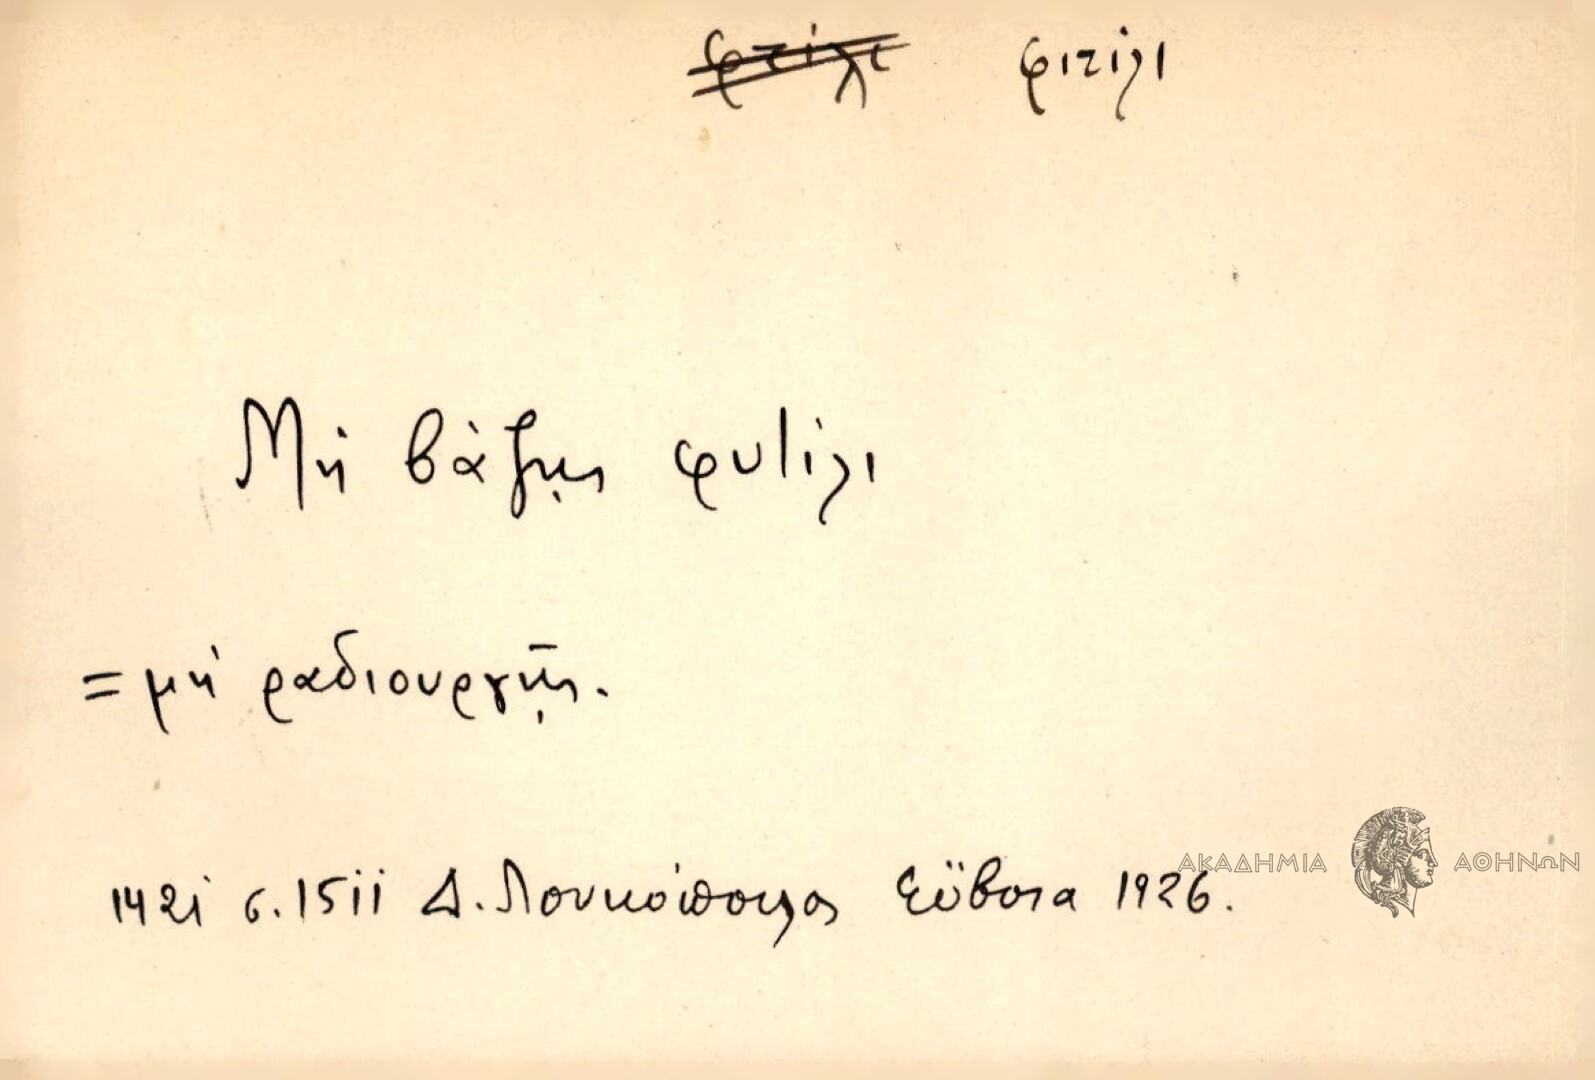 ~~φτίλι~~ φιτίλι
Μὴ βάζῃς φυτίλι
= μὴ ραδιουργῇς.
1421 σ. 1511 Δ. Λουκόπουλος Εὔβοια 1926.
ΑΚΑΔΗΜΙΑ ΑΘΗΝΩΝ